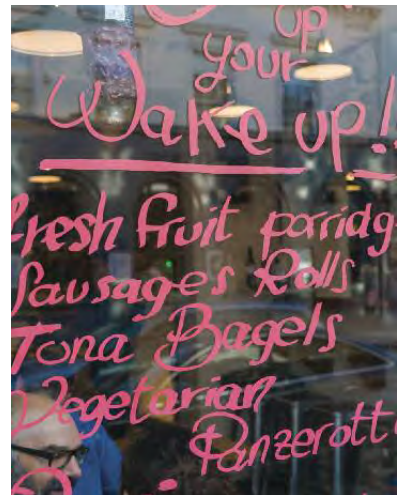 up
your
Wake up!!
fresh fruit porridg
Sausages Rolls
Tona Bagels
Vegetarian
Panzerott